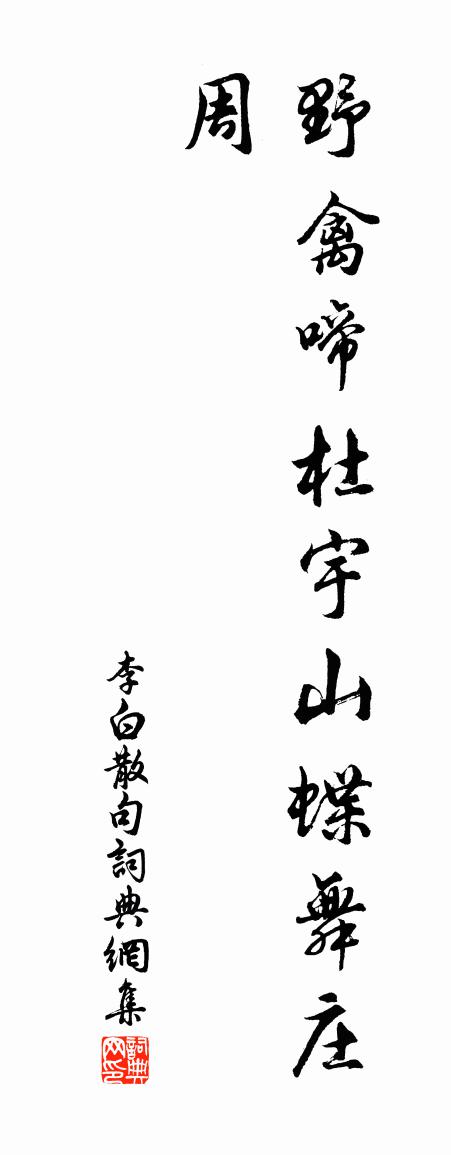 野禽啼杜宇山蝶舞庄
周
李白散句詞典網集
詞典
网印